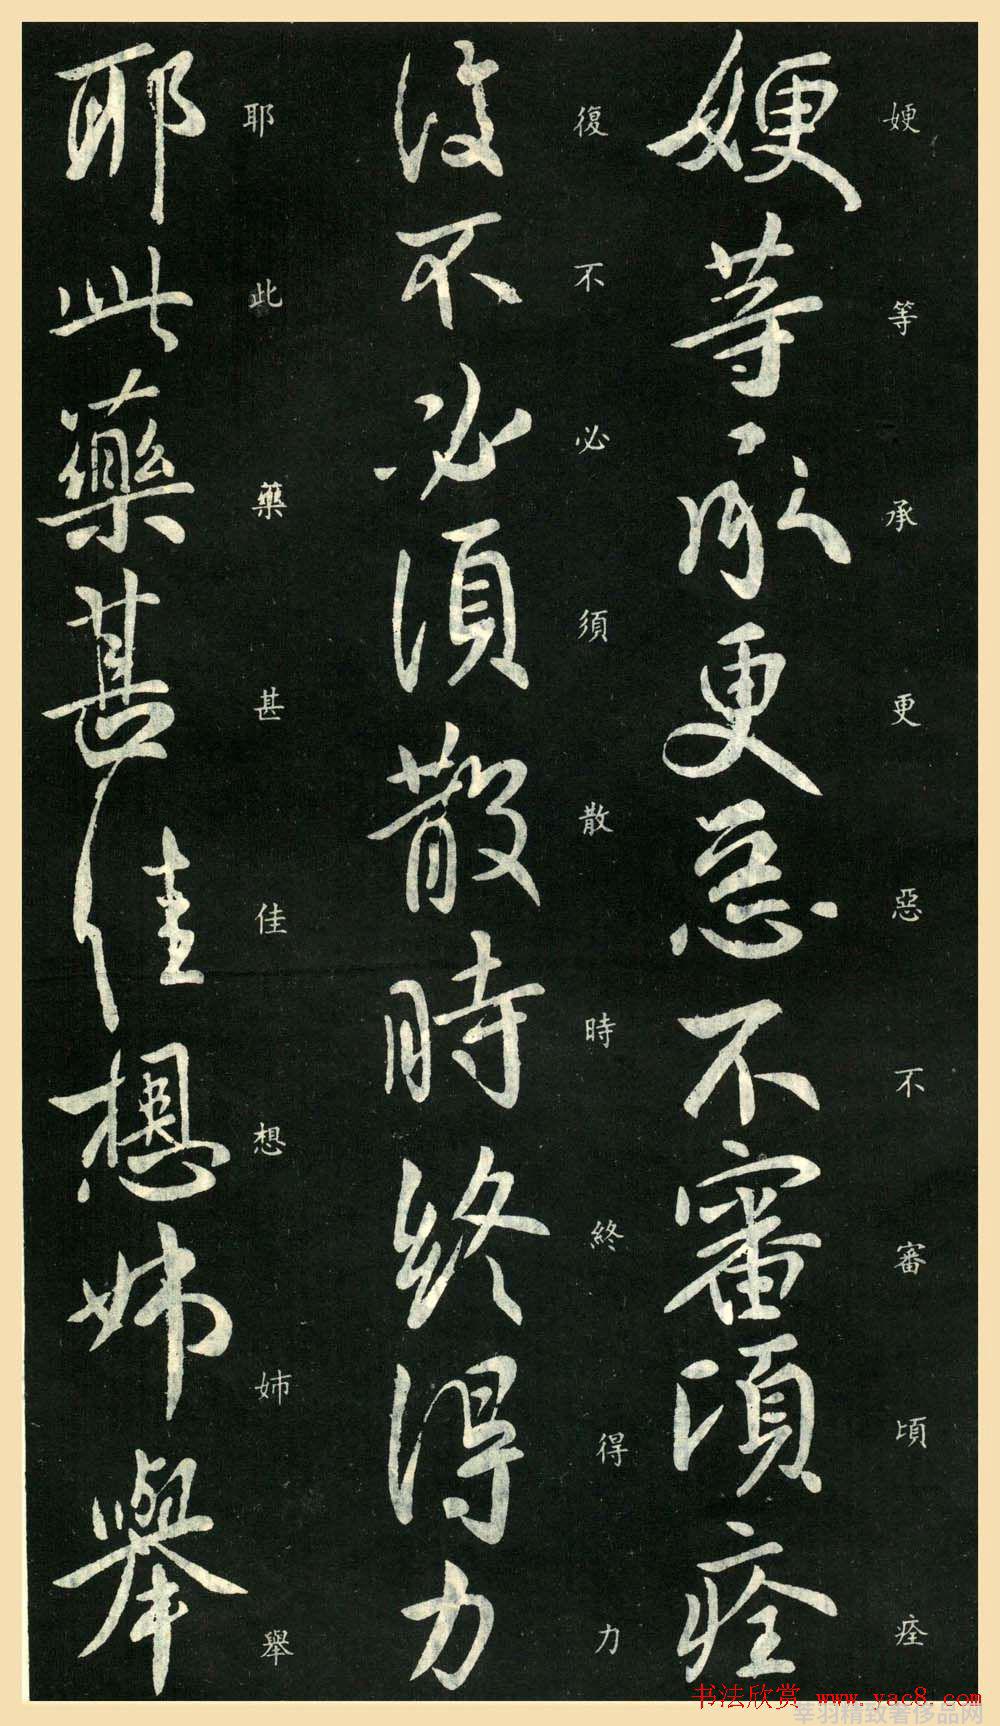 㛐等承更惡不審頃痊
復不必須散時終得力
耶此藥甚佳想姊舉
㛐等承更惡不審頃痊
復不必須散時終得力
耶此藥甚佳想姊舉
书法欣赏 www.yac8.com
莘羽精致奢侈品网